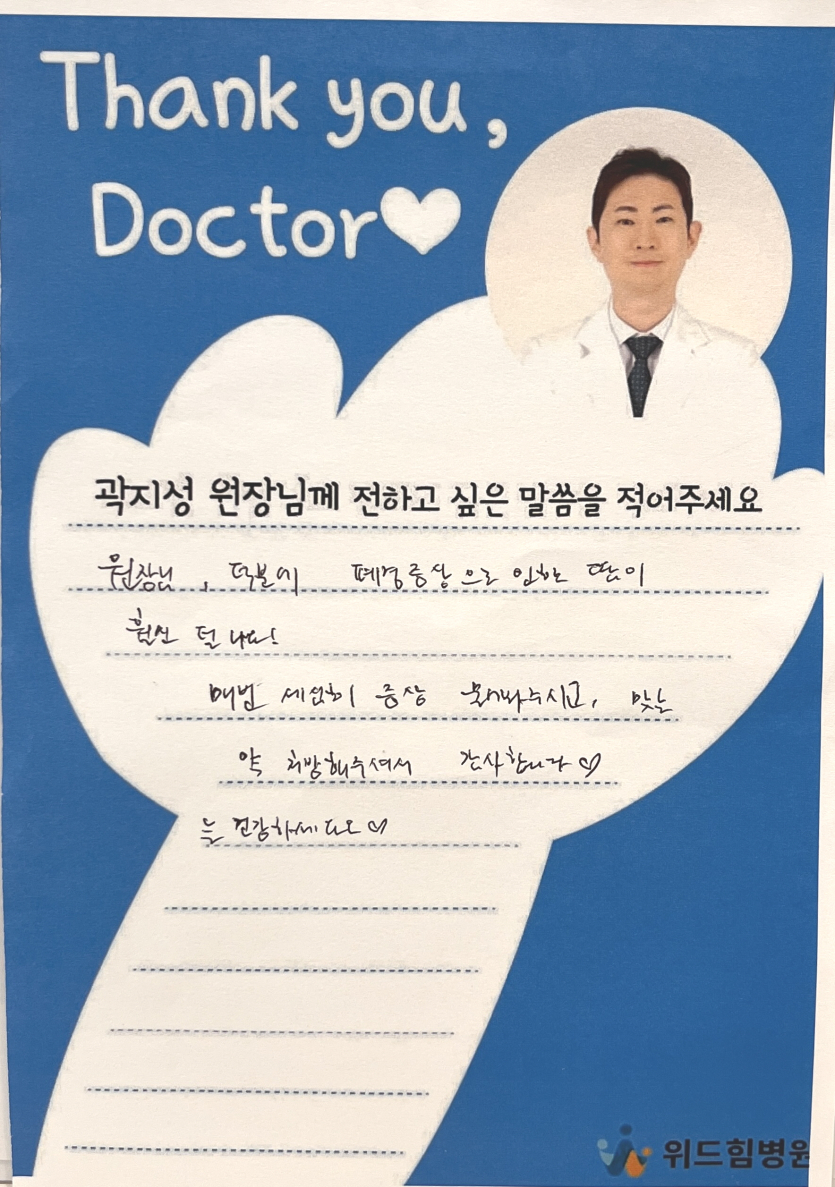 Thank you,
Doctor♥
곽지성 원장님께 전하고 싶은 말씀을 적어주세요
원장님, 덕분에 폐경증상으로 인한 땀이
훨신 덜 나요!
매번 세심히 증상 봐주시고, 맞는
약 처방해주셔서 감사합니다♡
늘 건강하세요♡
위드힘병원